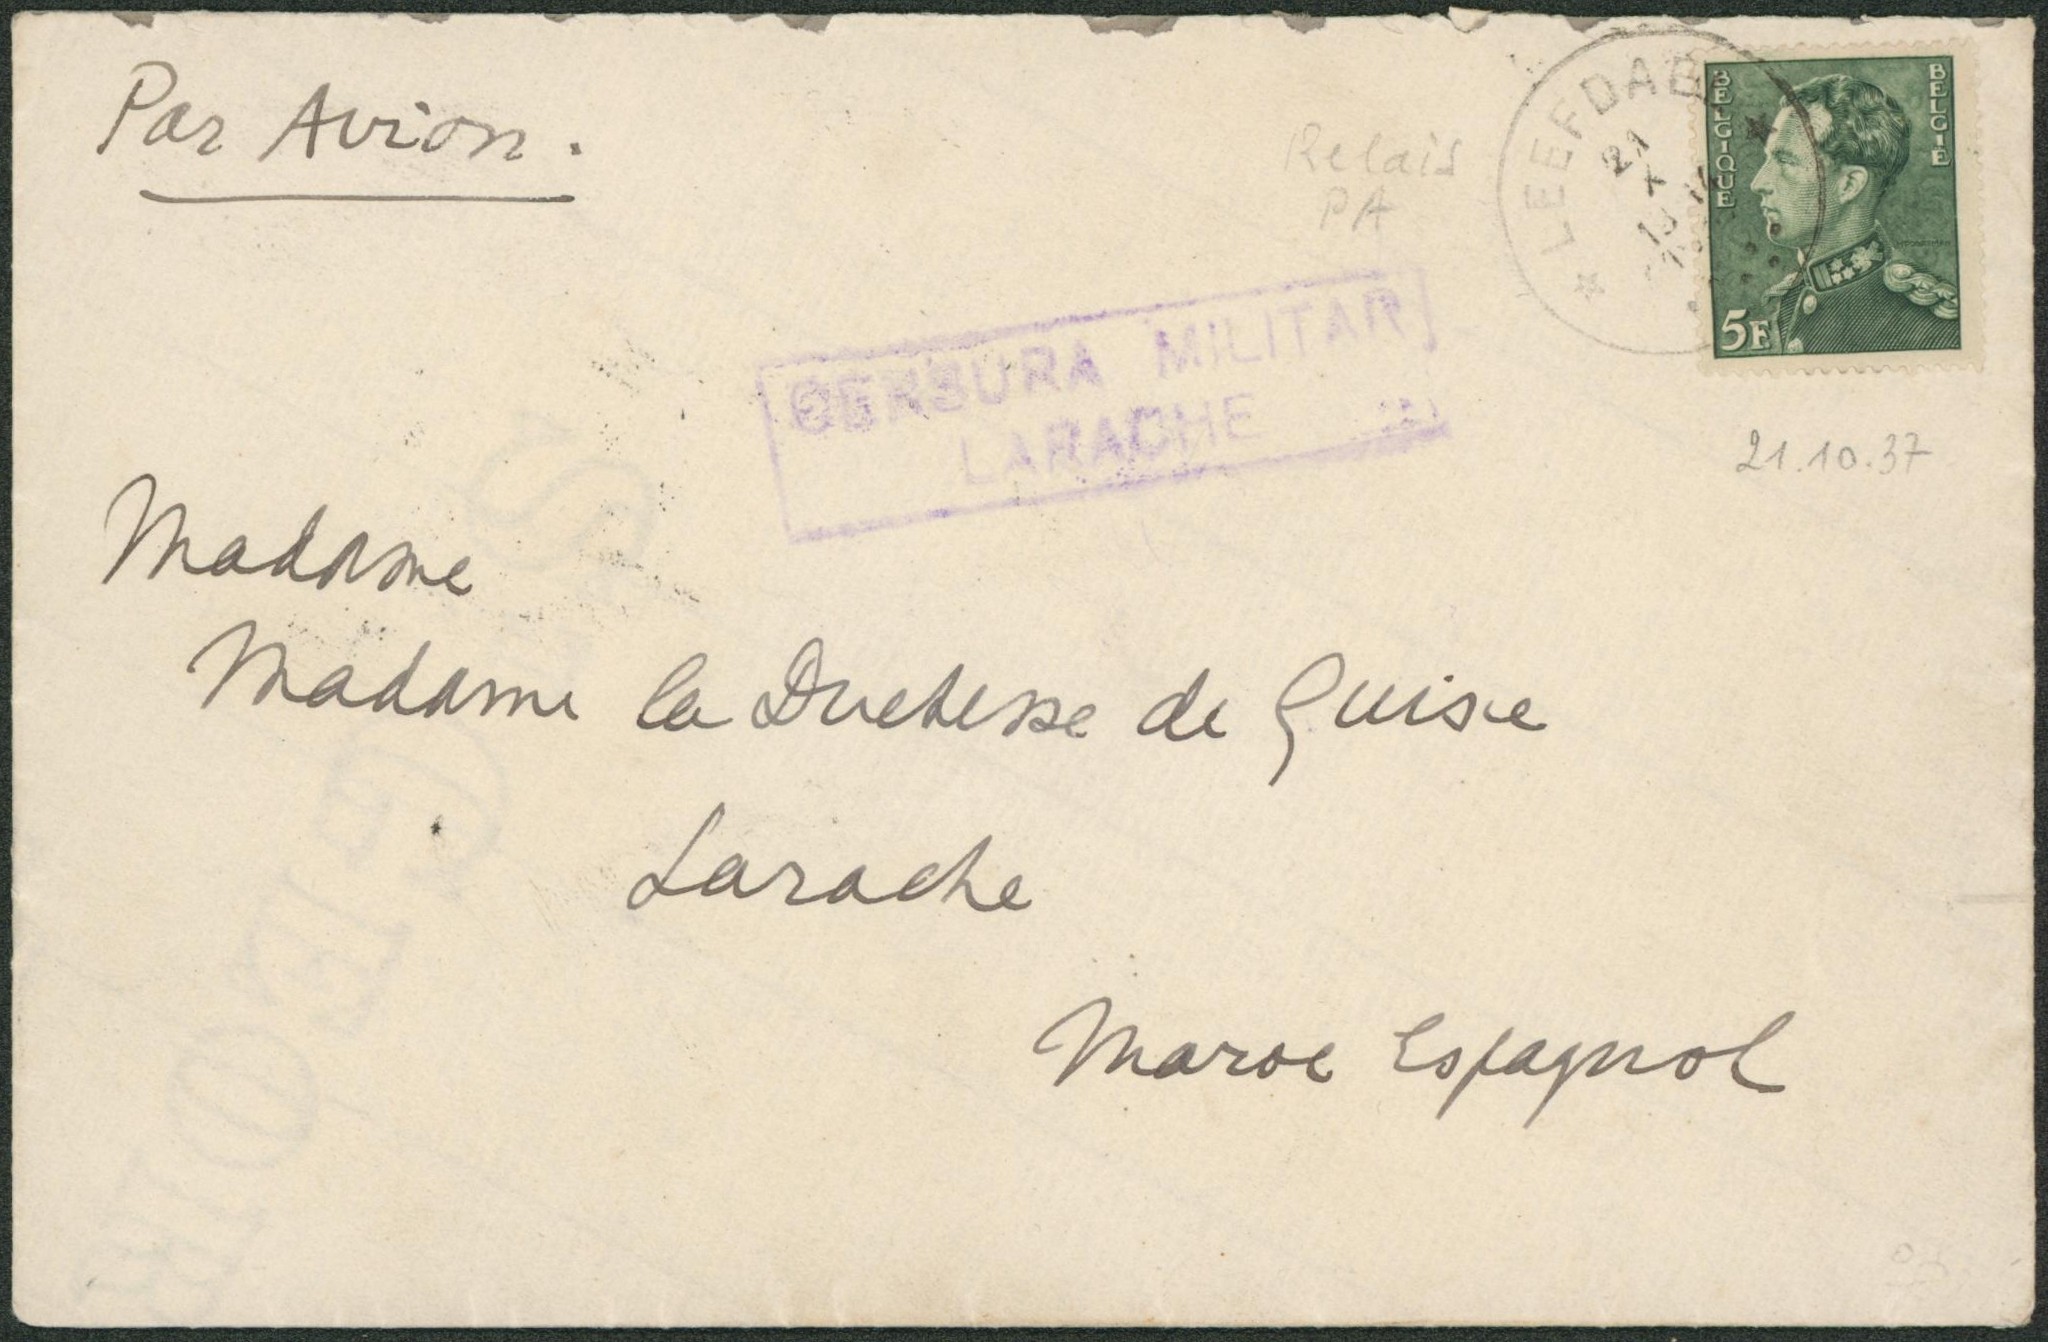 Par Avion.
Relais
PA
LEEFDAEL
21
X
BELGIQUE
BELGIË
5F
CENSURA MILITAR
LARACHE
21.10.37
Madame
Madame la Duchesse de Guise
Larache
Maroc Espagnol